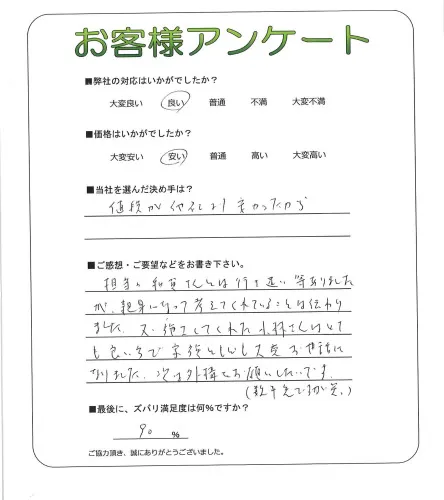 お客様アンケート
■弊社の対応はいかがでしたか?
大変良い 良い 普通 不満 大変不満
■価格はいかがでしたか?
大変安い 安い 普通 高い 大変高い
■当社を選んだ決め手は?
値段が他社より安かったから
■ご感想・ご要望などをお書き下さい。
担当の和賀さんとは行き違い等ありました
が、親身になって考えてくれていることは伝わり
ました。又、施工してくれた小林さんはとて
も良い方で家族ともども大変お世話に
なりました。次は外構でお願いしたいです。
(数千先ですが笑。)
■最後に、ズバリ満足度は何%ですか?
90 %
ご協力頂き、誠にありがとうございました。